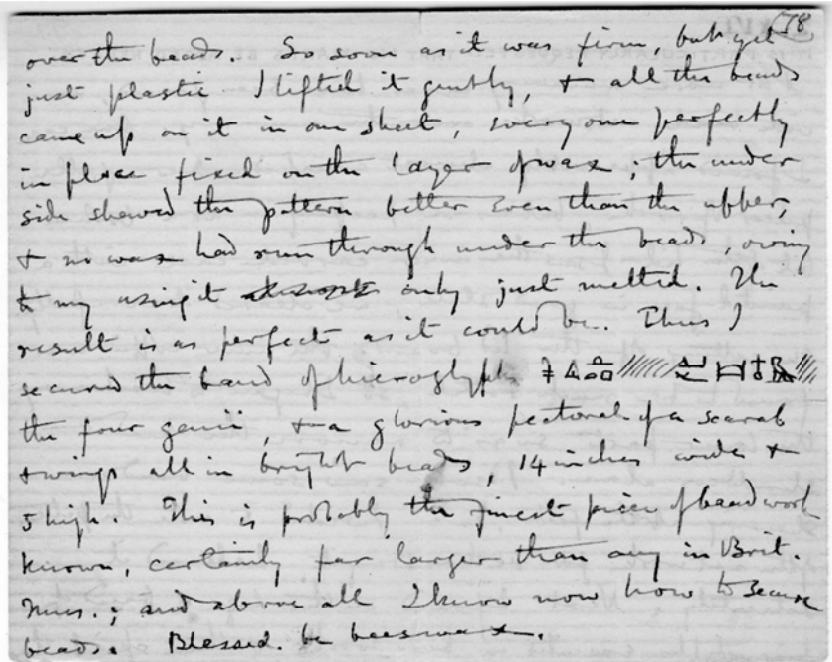 78
over the beads. So soon as it was firm, but yet
just plastic I lifted it gently, & all the beads
came up on it in one sheet, every one perfectly
in place fixed on the layer of wax; the under
side shewed the pattern better even than the upper,
& no wax had run through under the beads, owing
to my using it only just melted. The
result is as perfect as it could be. Thus I
secured the band of hieroglyphs
the four genii, & a glorious pectoral of a scarab
& wings all in bright beads, 14 inches wide &
5 high. This is probably the finest piece of bead work
known, certainly far larger than any in Brit.
Mus.; and above all I know now how to secure
beads. Blessed be beeswax.